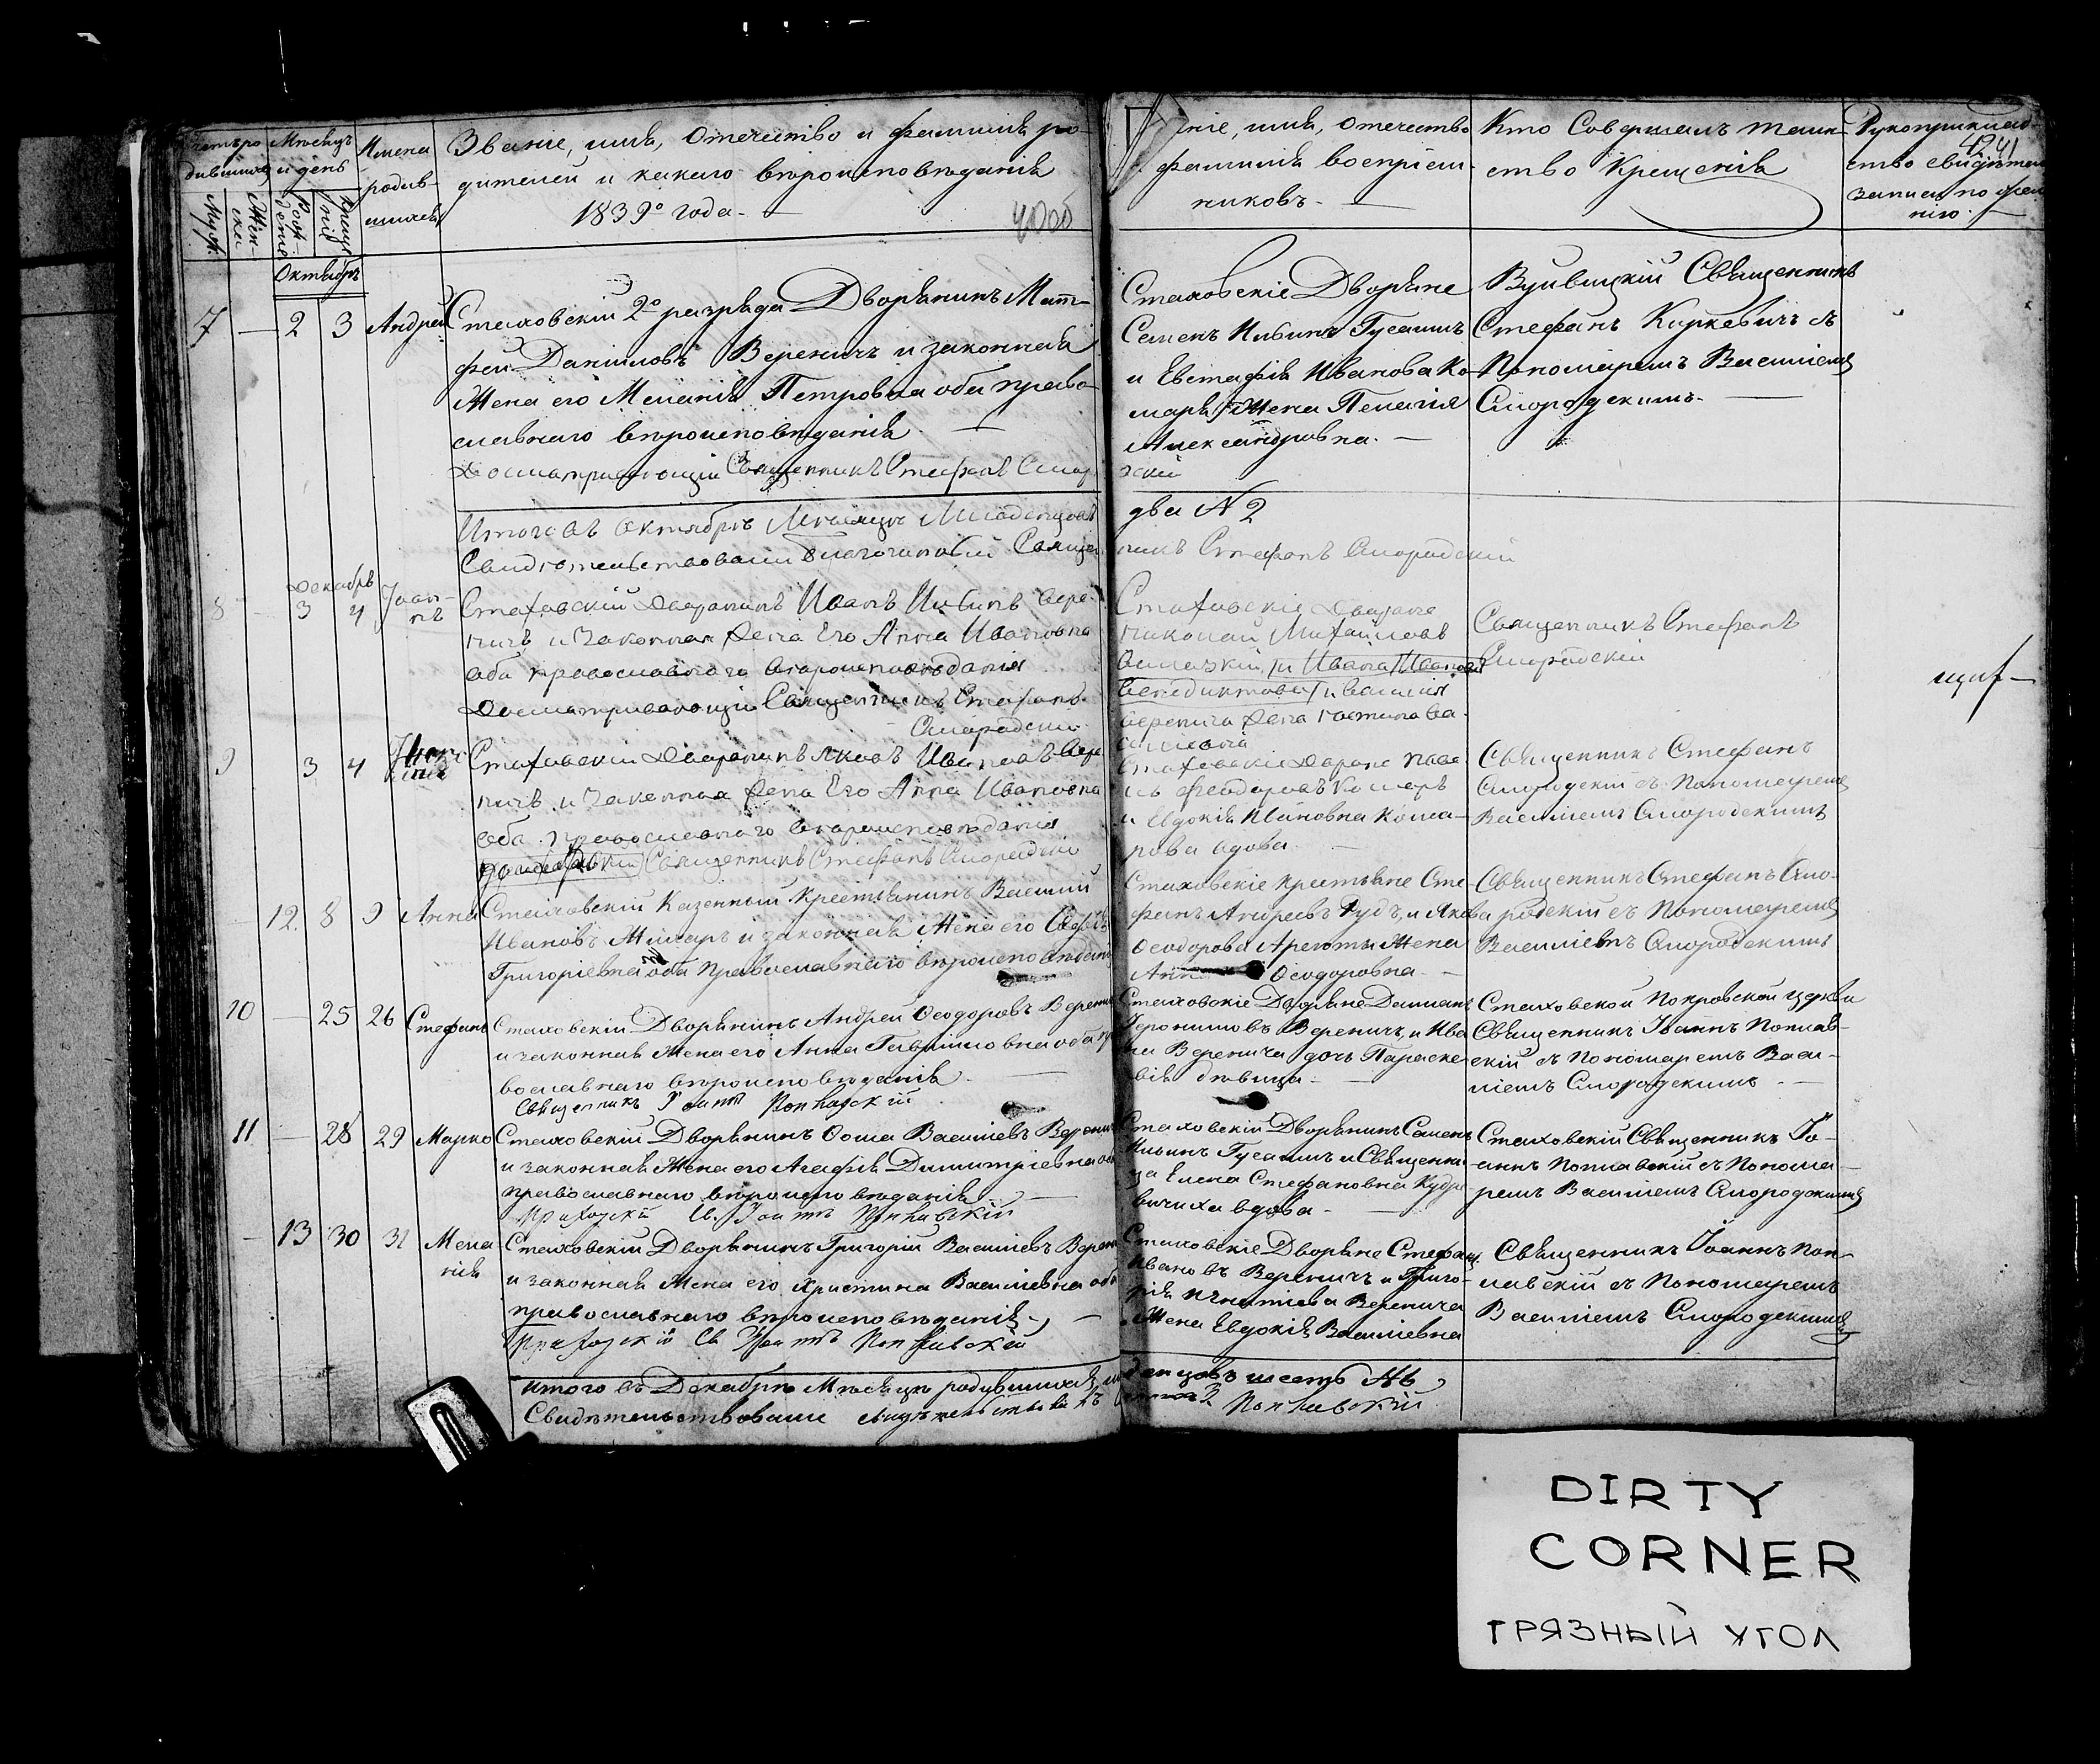 Мѣсяцъ и день
Имена родив-
шихся
Званіе, имя, отечество и фамилія ро-
дителей и какаго вѣроисповѣданія
1839º года.
имя, отечество
фамилія воспріем-
никовъ.
Кто Совершалъ таин-
ство Крещенія
Рукоприкладство
записи по
Октябрь
7 — 2 3 Андрей
Стаховскій 2º разряда Дворянинъ Мат-
фей Даніиловъ Вереничъ и законная
Жена его Меланія Петровна оба право-
славнаго вѣроисповѣданія. —
Священникъ Стефанъ
Стаховскіе Дворяне
Семенъ Ильинъ Гусаимъ
и Евстафія Иванова Ко-
мара Жена Пелагія
Александровна. —
Священникъ
Стефанъ Киркевичъ съ
Пономаремъ Василіемъ
Смородскимъ. —
Итого въ октябрѣ Мѣсяцѣ Младенцовъ
два № 2
Свидѣтельствовали Благочинный Священ
никъ Стефанъ Смородскій
Декабрь
8 3 4 Іоан-
нъ
Стаховскій Дворянинъ Иванъ Ильинъ Вере-
ничъ и Законная Жена Его Анна Ивановна
оба православнаго вѣроисповѣданія
Священникъ Стефанъ
Смородскій
Стаховскіе Дворяне
Николай Михайловъ
и Ивана Иванова
и Василія
Веренича Жена
Священникъ Стефанъ
Смородскій
9 3 4
Стаховскій Дворянинъ Яковъ Ивановъ Вере
ничъ и Законная Жена Его Анна Ивановна
оба православнаго вѣроисповѣданія
Священникъ Стефанъ Смородскій
Стаховскіе Дворяне Паве
лъ Феодоровъ Комаръ
и Евдокія Ивановна Кома-
рова вдова. —
Священникъ Стефанъ
Смородскій съ Пономаремъ
Василіемъ Смородскимъ
— 12. 8 9 Анна
Стаховскій Казенный Крестьянинъ Василій
Ивановъ и законная Жена его
Григоріевна оба Православнаго вѣроисповѣданія
Стаховскіе крестьяне Сте-
фанъ Андреевъ и Якова
Ѳеодорова Жена
Анна Ѳеодоровна. —
Священникъ Стефанъ Смо-
родскій съ Пономаремъ
Василіемъ Смородскимъ
10 — 25 26 Стефанъ
Стаховскій Дворянинъ Андрей Ѳеодоровъ Вереничъ
и законная Жена его Анна Гавріиловна оба пра
вославнаго вѣроисповѣданія. —
Священникъ Іоаннъ Поплавскій
Стаховскіе Дворяне Даміанъ
Іеронимовъ Вереничъ, и Ива
на Веренича дочь Параске-
вія дѣвица. —
Стаховской Покровской церкви
Священникъ Іоаннъ Поплав-
скій съ Пономаремъ Васи-
ліемъ Смородскимъ. —
11 — 28 29 Марко
Стаховскій Дворянинъ Ѳома Василіевъ Вереничъ
и законная Жена его Агафія Димитріевна оба
православнаго вѣроисповѣданія. —
Приходскій Св. Іоаннъ Поплавскій
Стаховскій Дворянинъ Семенъ
Ильинъ Гусаимъ и Священни-
ца Елена Стефановна
вдова. —
Стаховскій Священникъ Іо-
аннъ Поплавскій съ Понома-
ремъ Василіемъ Смородскимъ
— 13 30 31 Мела-
нія
Стаховскій Дворянинъ Григорій Василіевъ Вереничъ
и законная Жена его Христина Василіевна оба
православнаго вѣроисповѣданія. —
Приходскій Св Іоаннъ Поплавскій
Стаховскіе Дворяне Стефанъ
Ивановъ Вереничъ и Григо-
рія Игнатіева Веренича
Жена Евдокія Василіевна
Священникъ Іоаннъ Поп-
лавскій съ Пономаремъ
Василіемъ Смородскимъ
Итого въ Декабрѣ Мѣсяцѣ родившихся мла
денцовъ шесть № 6
Свидѣтельствовали
Поплавскій
DIRTY
CORNER
ГРЯЗНЫЙ УГОЛ